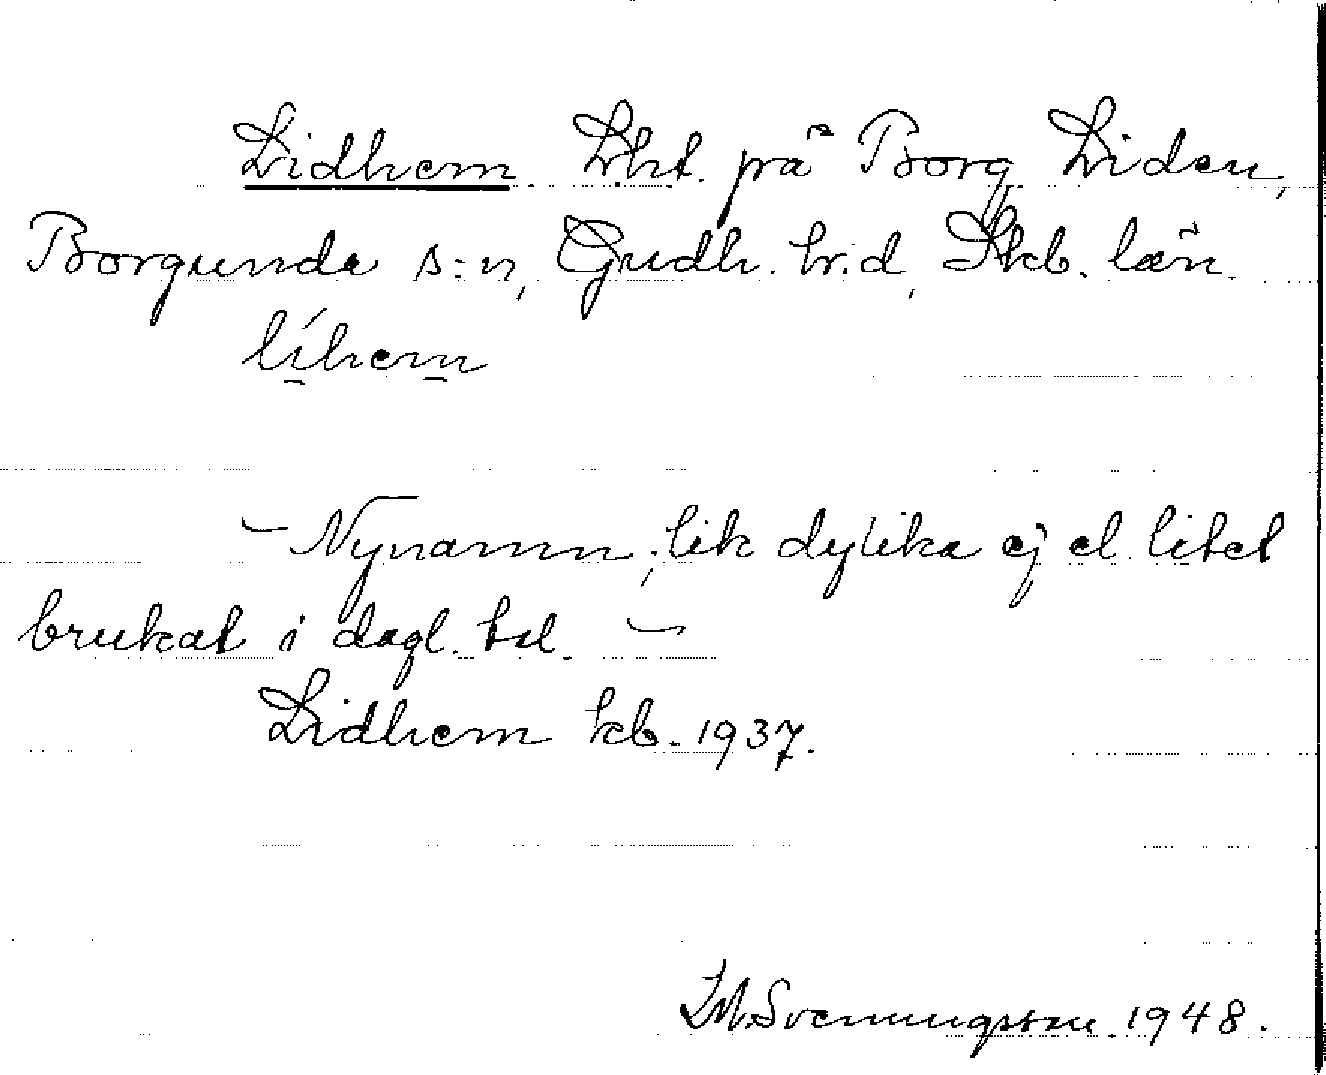 Lidhem. Lht. på Borg Liden,
Borgunda s:n, Gudh. hrd, Skb. län.
líhem
– Nynamn, lik dylika ej el. litet
brukat i dagl. tal. –
Lidhem kb. 1937.
Svenningsson. 1948.